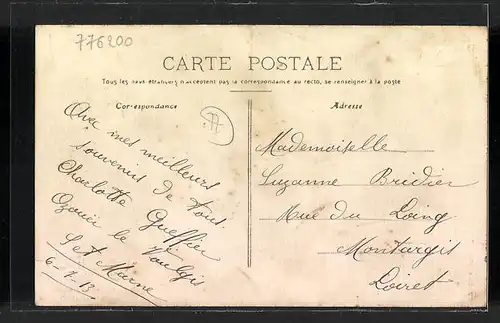 776200
CARTE POSTALE
Tous les pays étrangers n'acceptent pas la correspondance au recto, se renseigner à la poste
Correspondance
Adresse
Avec mes meilleurs
souvenirs de tout
Charlotte Gueffier
Ozouer le Voulgis
S et Marne
6-2-13
Mademoiselle
Suzanne Bridier
Rue du Loing
Montargis
Loiret